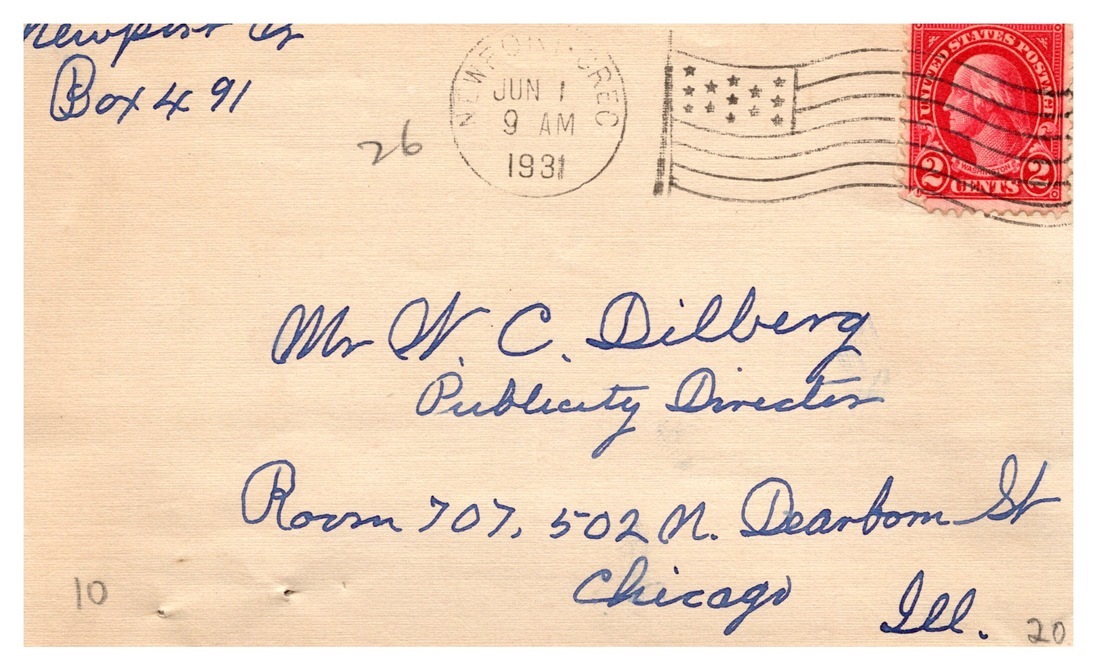 Newport Or
Box 491
26
NEWPORT, OREG
JUN 1
9 AM
1931
UNITED STATES POSTAGE
WASHINGTON
2 CENTS 2
Mr W. C. Dilberg
Publicity Director
Room 707, 502 N. Dearborn St
Chicago
Ill.
10
20